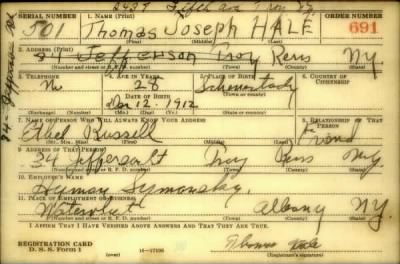 2437 Fifth Ave Troy NY
SERIAL NUMBER 1. NAME (Print) ORDER NUMBER
501 Thomas Joseph HALE 691
(First) (Middle) (Last)
2. ADDRESS (Print)
34 Jefferson Troy Rens N.Y.
(Number and street or R. F. D. number) (Town) (County) (State)
3. TELEPHONE 4. AGE IN YEARS 5. PLACE OF BIRTH 6. COUNTRY OF CITIZENSHIP
No 28 Schenectady
DATE OF BIRTH
Dec 12 1912
(Exchange) (Number) (Mo.) (Day) (Yr.) (State or country)
7. NAME OF PERSON WHO WILL ALWAYS KNOW YOUR ADDRESS 8. RELATIONSHIP OF THAT PERSON
Ethel Russell Friend
(Mr., Mrs., Miss) (First) (Middle) (Last)
9. ADDRESS OF THAT PERSON
34 Jefferson St Troy Rens N.Y.
(Number and street or R. F. D. number) (Town) (County) (State)
10. EMPLOYER'S NAME
Hyman Symansky
11. PLACE OF EMPLOYMENT OR BUSINESS
Watervliet Albany N.Y.
(Number and street or R. F. D. number) (Town) (County) (State)
I AFFIRM THAT I HAVE VERIFIED ABOVE ANSWERS AND THAT THEY ARE TRUE.
REGISTRATION CARD
D. S. S. Form 1 Thomas Hale
(Registrant's signature)
34 Jefferson St